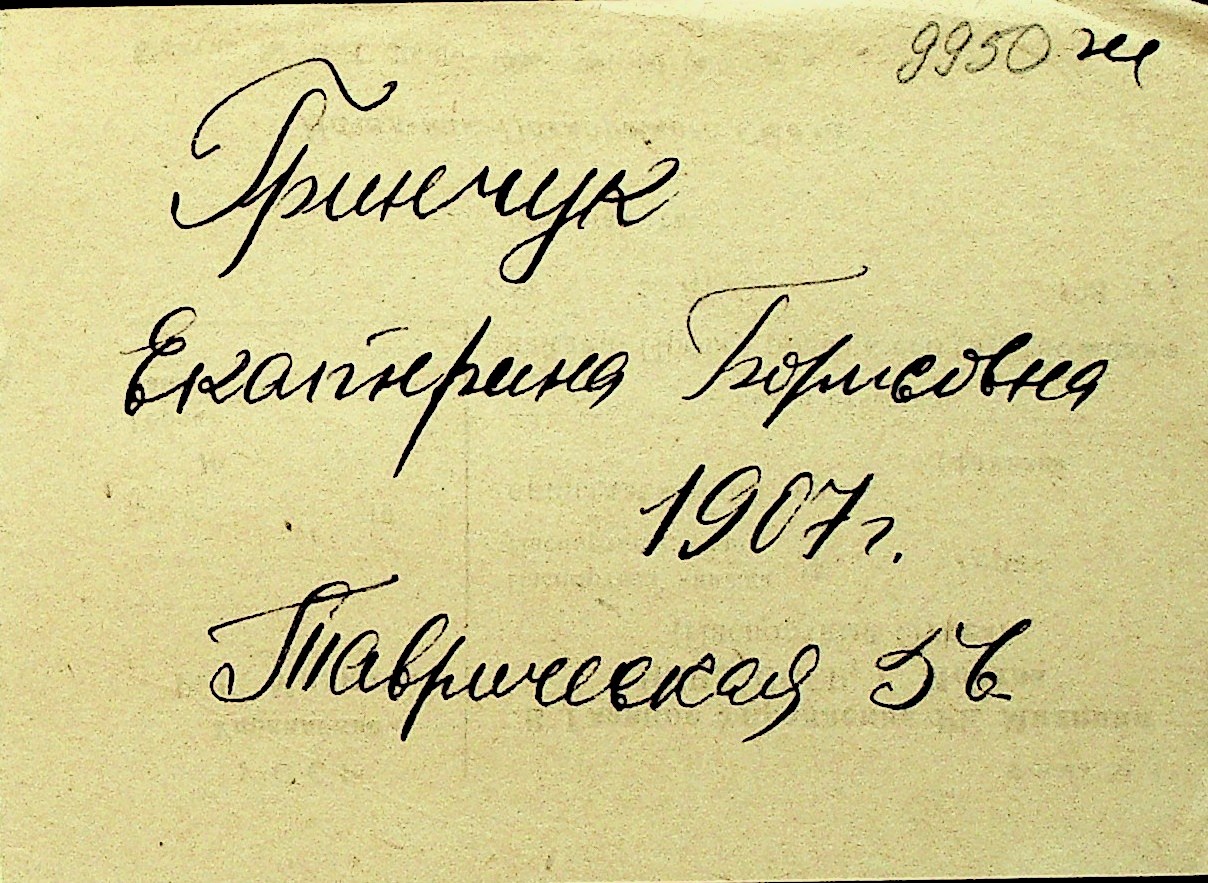 9950 ж
Гринчук
Екатерина Борисовна
1907г.
Таврическая 5в